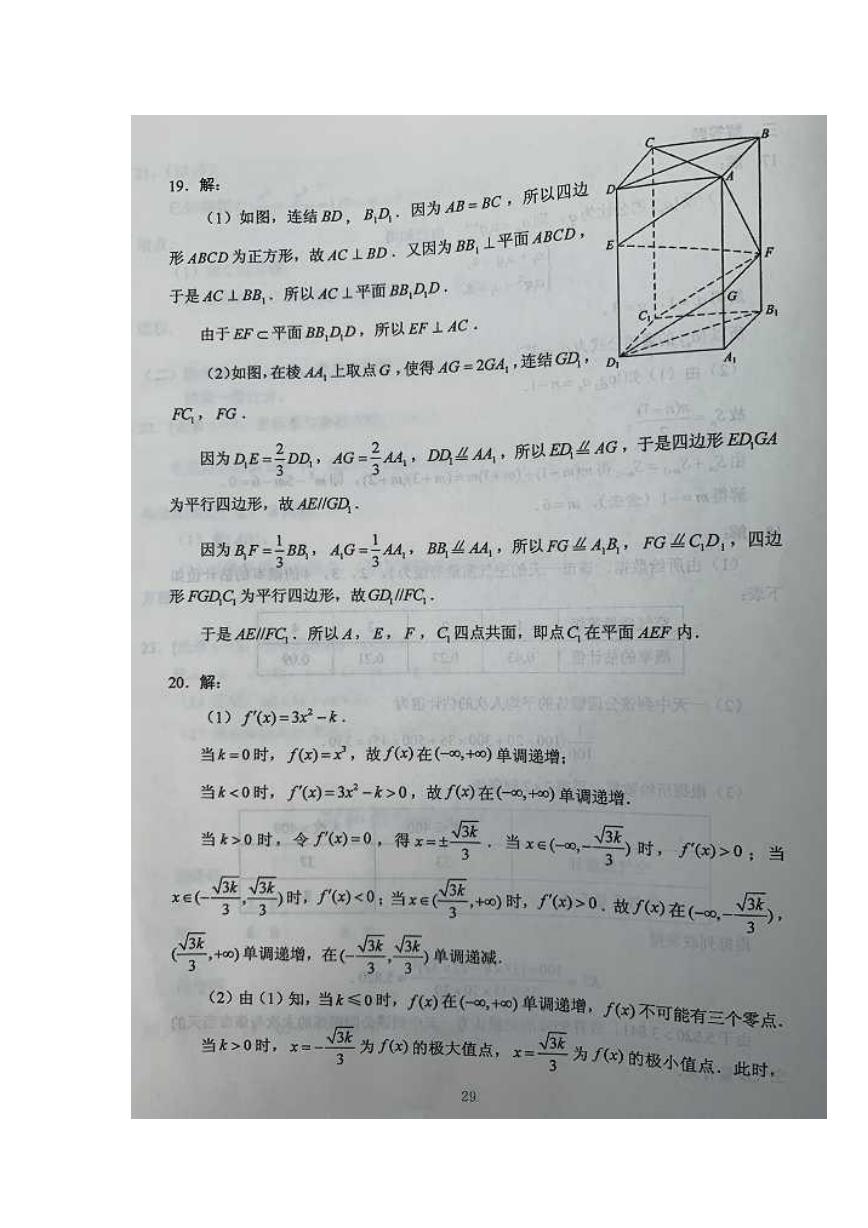 19．解：
（1）如图，连结 BD，B₁D₁．因为 AB = BC，所以四边
形 ABCD 为正方形，故 AC⊥BD．又因为 BB₁⊥平面 ABCD，
于是 AC⊥BB₁．所以 AC⊥平面 BB₁D₁D．
由于 EF⊂平面 BB₁D₁D，所以 EF⊥AC．
(2)如图,在棱 AA₁ 上取点 G,使得 AG = 2GA₁,连结 GD₁，
FC₁，FG．
因为 D₁E = 2/3 DD₁，AG = 2/3 AA₁，DD₁ ∥= AA₁，所以 ED₁ ∥= AG，于是四边形 ED₁GA
为平行四边形，故 AE//GD₁．
因为 B₁F = 1/3 BB₁，A₁G = 1/3 AA₁，BB₁ ∥= AA₁，所以 FG ∥= A₁B₁，FG ∥= C₁D₁，四边
形 FGD₁C₁ 为平行四边形，故 GD₁//FC₁．
于是 AE//FC₁．所以 A，E，F，C₁ 四点共面，即点 C₁ 在平面 AEF 内．
20．解：
（1）f′(x) = 3x² − k．
当 k = 0 时，f(x) = x³，故 f(x) 在 (−∞,+∞) 单调递增；
当 k < 0 时，f′(x) = 3x² − k > 0，故 f(x) 在 (−∞,+∞) 单调递增．
当 k > 0 时，令 f′(x) = 0，得 x = ±√3k/3．当 x∈(−∞,−√3k/3) 时，f′(x) > 0；当
x∈(−√3k/3,√3k/3) 时，f′(x) < 0；当 x∈(√3k/3,+∞) 时，f′(x) > 0．故 f(x) 在 (−∞,−√3k/3)，
(√3k/3,+∞) 单调递增，在 (−√3k/3,√3k/3) 单调递减．
（2）由（1）知，当 k ≤ 0 时，f(x) 在 (−∞,+∞) 单调递增，f(x) 不可能有三个零点．
当 k > 0 时，x = −√3k/3 为 f(x) 的极大值点，x = √3k/3 为 f(x) 的极小值点．此时，
29
C
B
D
A
E
F
G
C₁
B₁
D₁
A₁